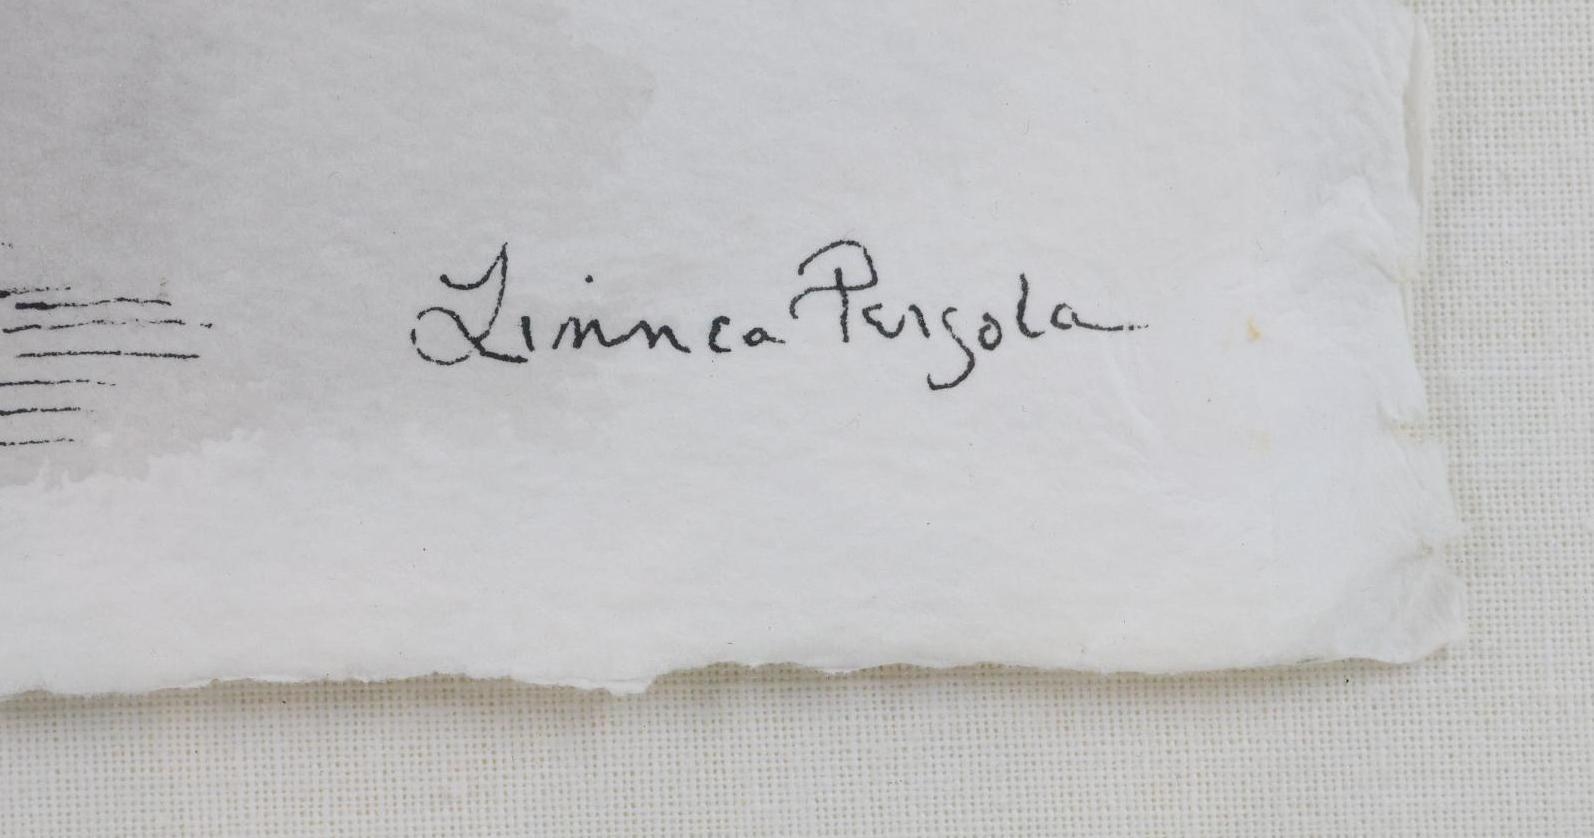 Linnea Pergola